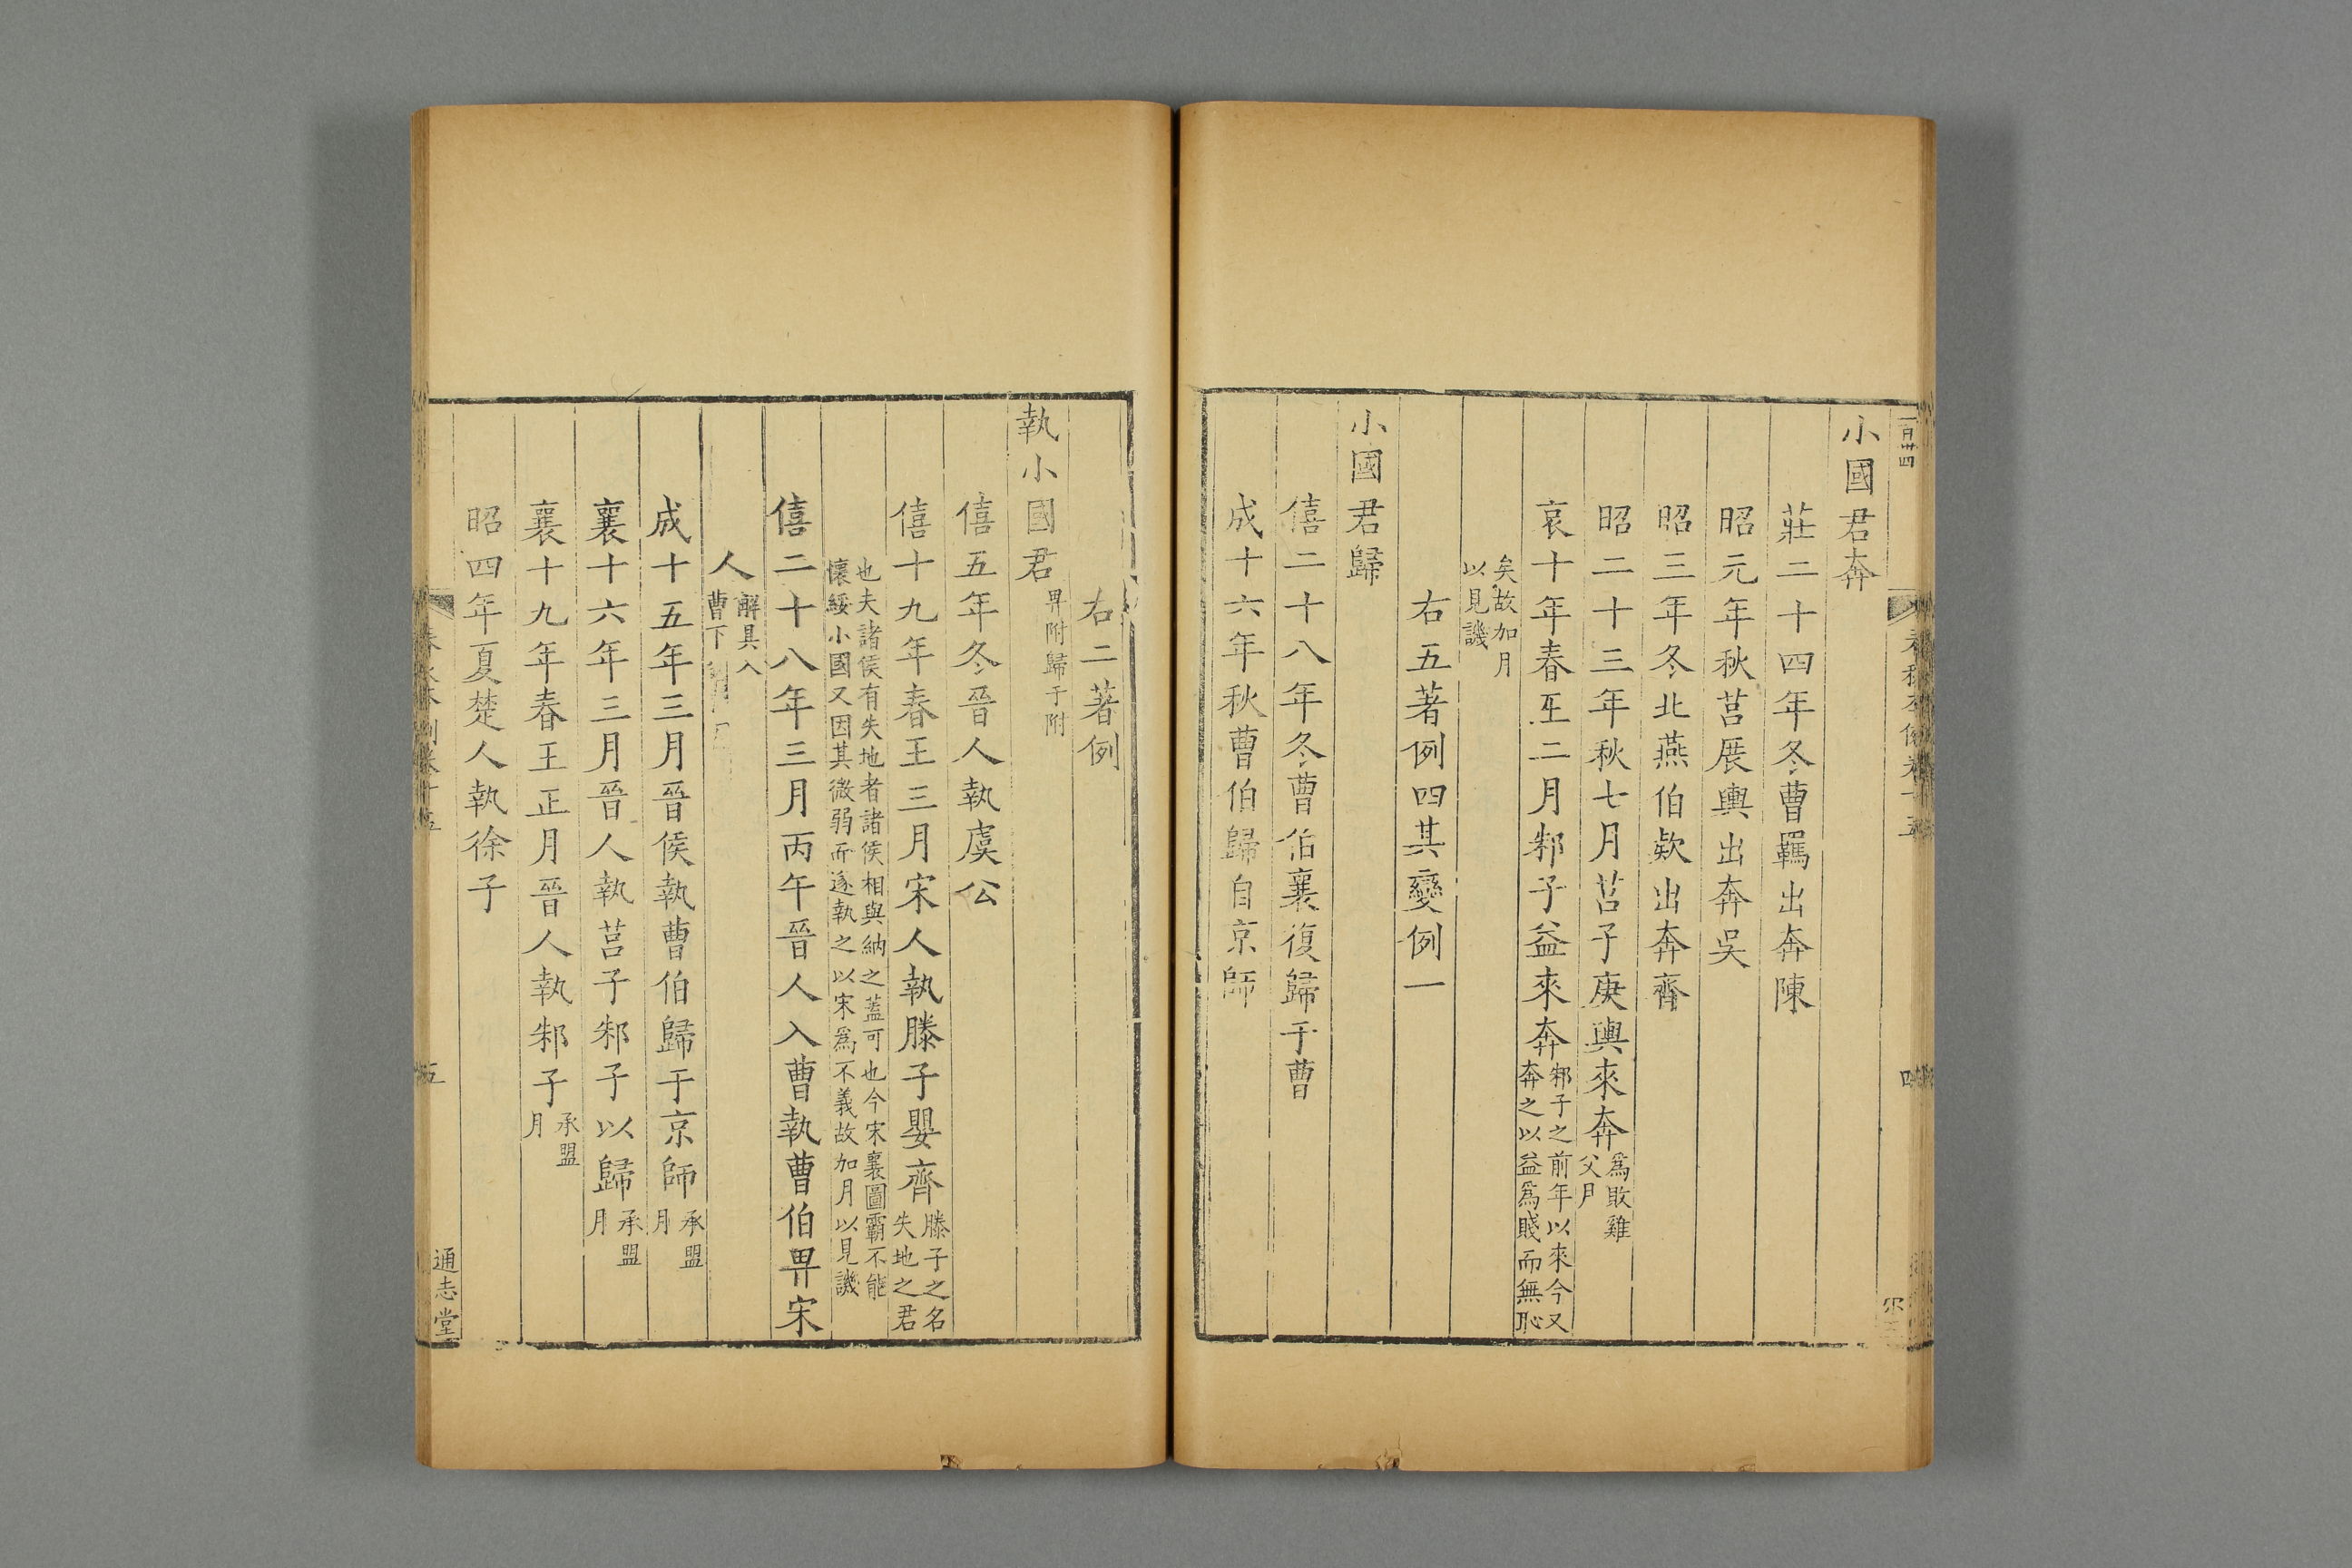 小國君奔
莊二十四年冬曹羈出奔陳
昭元年秋莒展輿出奔吳
昭三年冬北燕伯欵出奔齊
昭二十三年秋七月莒子庚輿來奔爲敗雞
父月
哀十年春王二月邾子益來奔邾子之前年以來今又
奔之以益爲賤而無恥
矣故加月
以見譏
右五著例四其變例一
小國君歸
僖二十八年冬曹伯襄復歸于曹
成十六年秋曹伯歸自京師
右二著例
執小國君畀附歸于附
僖五年冬晉人執虞公
僖十九年春王三月宋人執滕子嬰齊滕子之名
失地之君
也夫諸侯有失地者諸侯相與納之蓋可也今宋襄圖霸不能
懷綏小國又因其微弱而遂執之以宋爲不義故加月以見譏
僖二十八年三月丙午晉人入曹執曹伯畀宋
人解具入
曹下
成十五年三月晉侯執曹伯歸于京師承盟
月
襄十六年三月晉人執莒子邾子以歸承盟
月
襄十九年春王正月晉人執邾子承盟
月
昭四年夏楚人執徐子
五
通志堂